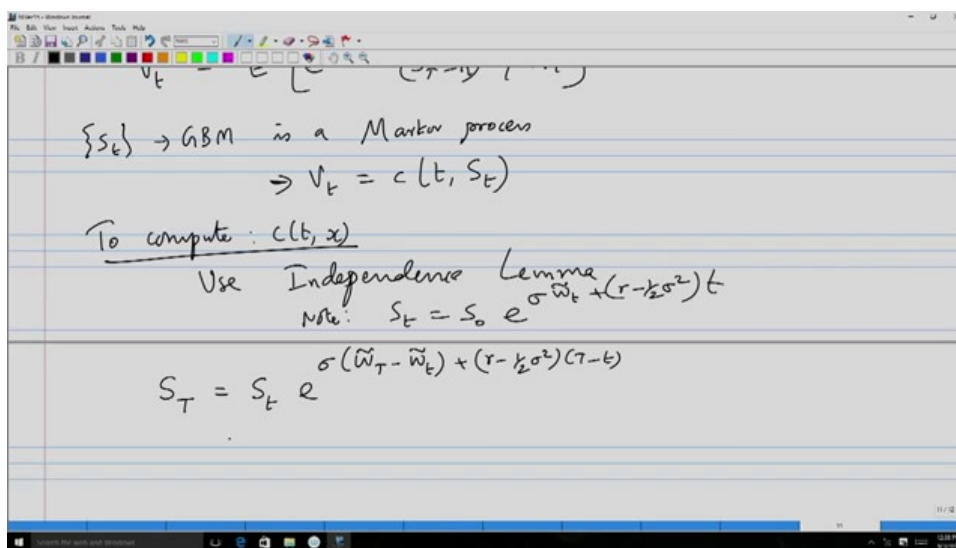 File Edit View Insert Actions Tools Help
B I
V_t = E [ e (S_T - K)
{S_t} → GBM is a Markov process
⇒ V_t = c(t, S_t)
To compute : c(t, x)
Use Independence Lemma
Note: S_t = S_0 e^{σ W̃_t + (r - ½σ²) t}
S_T = S_t e^{σ (W̃_T - W̃_t) + (r - ½σ²)(T - t)}
Search the web and Windows